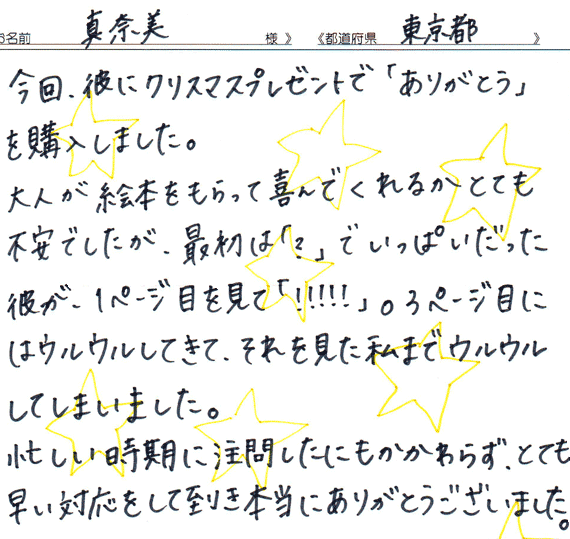 お名前 真奈美 様 》 《都道府県 東京都 》
今回、彼にクリスマスプレゼントで「ありがとう」
を購入しました。
大人が絵本をもらって喜んでくれるかとても
不安でしたが、最初は「?」でいっぱいだった
彼が、1ページ目を見て「!!!!!」。3ページ目に
はウルウルしてきて、それを見た私までウルウル
してしまいました。
忙しい時期に注問したにもかかわらず、とても
早い対応をして到き本当にありがとうございました。